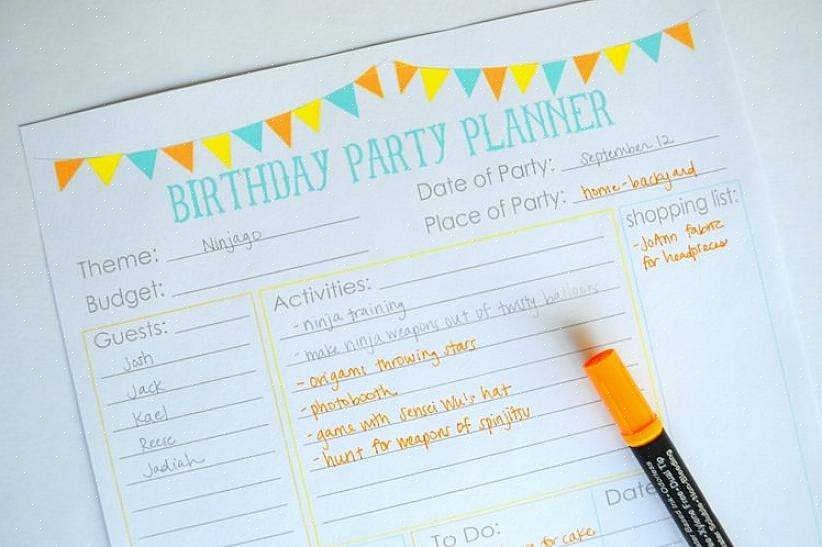 BIRTHDAY PARTY PLANNER
Date of Party: september 12
Place of Party: home-backyard
Theme: Ninjago
Budget:
Guests:
Josh
Jack
Kael
Reese
Jadiah
Activities:
- ninja training
- make ninja weapons out of twisty balloons
- origami throwing stars
- photobooth
- game with sensei Wu's hat
- hunt for weapons of spinjitsu
shopping list:
- JoAnn fabric
for headpieces
To Do:
for cake
Date
Xylene Free • Dual Tip